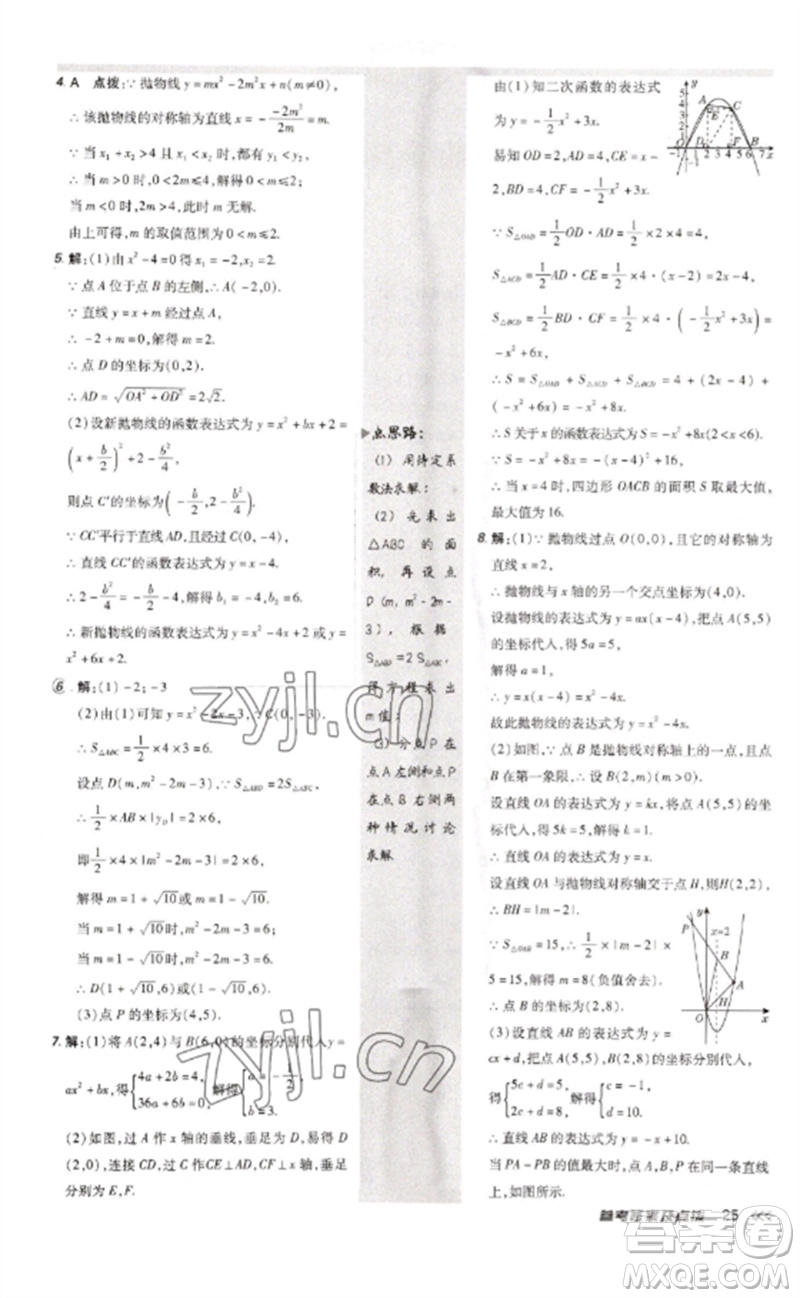 4. A 点拨:∵ 抛物线 y = mx² - 2m²x + n(m≠0),
∴ 该抛物线的对称轴为直线 x = - \frac{-2m²}{2m} = m.
∵ 当 x₁ + x₂ > 4 且 x₁ < x₂ 时,都有 y₁ < y₂,
∴ 当 m > 0 时,2m ≤ 4,解得 0 < m ≤ 2;
当 m < 0 时,2m > 4,此时 m 无解.
由上可得,m 的取值范围为 0 < m ≤ 2.
5. 解:(1)由 x² - 4 = 0 得 x₁ = -2, x₂ = 2.
∵ 点 A 位于点 B 的左侧,∴ A(-2,0).
∵ 直线 y = x + m 经过点 A,
∴ -2 + m = 0,解得 m = 2.
∴ 点 D 的坐标为(0,2).
∴ AD = \sqrt{OA² + OD²} = 2\sqrt{2}.
(2)设新抛物线的函数表达式为 y = x² + bx + 2 =
(x + \frac{b}{2})² + 2 - \frac{b²}{4},
则点 C′的坐标为(-\frac{b}{2}, 2 - \frac{b²}{4}).
∵ CC′平行于直线 AD,且经过 C(0, -4),
∴ 直线 CC′的函数表达式为 y = x - 4.
∴ 2 - \frac{b²}{4} = -\frac{b}{2} - 4,解得 b₁ = -4, b₂ = 6.
∴ 新抛物线的函数表达式为 y = x² - 4x + 2 或 y =
x² + 6x + 2.
6. 解:(1) -2; -3
(2)由(1)可知 y = x² - 2x - 3,∵ C(0, -3),
∴ S△ABC = \frac{1}{2} × 4 × 3 = 6.
设点 D(m, m² - 2m - 3),∵ S△ABD = 2S△ABC,
∴ \frac{1}{2} × AB × |y_D| = 2 × 6,
即 \frac{1}{2} × 4 × |m² - 2m - 3| = 2 × 6,
解得 m = 1 + \sqrt{10} 或 m = 1 - \sqrt{10}.
当 m = 1 + \sqrt{10} 时, m² - 2m - 3 = 6;
当 m = 1 - \sqrt{10} 时, m² - 2m - 3 = 6.
∴ D(1 + \sqrt{10}, 6) 或(1 - \sqrt{10}, 6).
(3)点 P 的坐标为(4,5).
7. 解:(1)将 A(2,4)与 B(6,0)的坐标分别代入 y =
ax² + bx,得 {4a + 2b = 4, 36a + 6b = 0, 解得 {a = -\frac{1}{2}, b = 3.
(2)如图,过 A 作 x 轴的垂线,垂足为 D,易得 D
(2,0),连接 CD,过 C 作 CE⊥AD, CF⊥x 轴,垂足
分别为 E, F.
点思路:
(1) 用待定系
数法求解;
(2) 先求出
△ABC 的面
积,再设点
D(m, m²-2m-
3),根据
S△ABD = 2S△ABC
得方程求出
m值;
(3) 分点 P 在
点 A 左侧和点 P
在点 B 右侧两
种情况讨论
求解.
由(1)知二次函数的表达式
为 y = -\frac{1}{2}x² + 3x.
易知 OD = 2, AD = 4, CE = x -
2, BD = 4, CF = -\frac{1}{2}x² + 3x.
∵ S△OAD = \frac{1}{2}OD·AD = \frac{1}{2} × 2 × 4 = 4,
S△ACD = \frac{1}{2}AD·CE = \frac{1}{2} × 4 × (x - 2) = 2x - 4,
S△BCD = \frac{1}{2}BD·CF = \frac{1}{2} × 4 × (-\frac{1}{2}x² + 3x) =
-x² + 6x,
∴ S = S△OAD + S△ACD + S△BCD = 4 + (2x - 4) +
(-x² + 6x) = -x² + 8x.
∴ S 关于 x 的函数表达式为 S = -x² + 8x(2<x<6).
∵ S = -x² + 8x = -(x - 4)² + 16,
∴ 当 x = 4 时,四边形 OACB 的面积 S 取最大值,
最大值为 16.
8. 解:(1)∵ 抛物线过点 O(0,0),且它的对称轴为
直线 x = 2,
∴ 抛物线与 x 轴的另一个交点坐标为(4,0).
设抛物线的表达式为 y = ax(x - 4),把点 A(5,5)
的坐标代入,得 5a = 5,
解得 a = 1,
∴ y = x(x - 4) = x² - 4x.
故此抛物线的表达式为 y = x² - 4x.
(2)如图,∵ 点 B 是抛物线对称轴上的一点,且点
B 在第一象限,∴ 设 B(2, m)(m > 0).
设直线 OA 的表达式为 y = kx,将点 A(5,5)的坐标
代入,得 5k = 5,解得 k = 1.
∴ 直线 OA 的表达式为 y = x.
设直线 OA 与抛物线对称轴交于点 H,则 H(2,2),
∴ BH = |m - 2|.
∵ S△OAB = 15, ∴ \frac{1}{2} × |m - 2| ×
5 = 15,解得 m = 8(负值舍去).
∴ 点 B 的坐标为(2,8).
(3)设直线 AB 的表达式为 y =
cx + d,把点 A,点 B 的坐标分别代入,
得 {5c + d = 5, 2c + d = 8, 解得 {c = -1, d = 10.
∴ 直线 AB 的表达式为 y = -x + 10.
当 PA - PB 的值最大时,点 P,A,B 在同一条直线
上,如图所示.
参考答案及点拨 25
zyjl.cn
zyjl.cn
答案圈
MXQE.COM